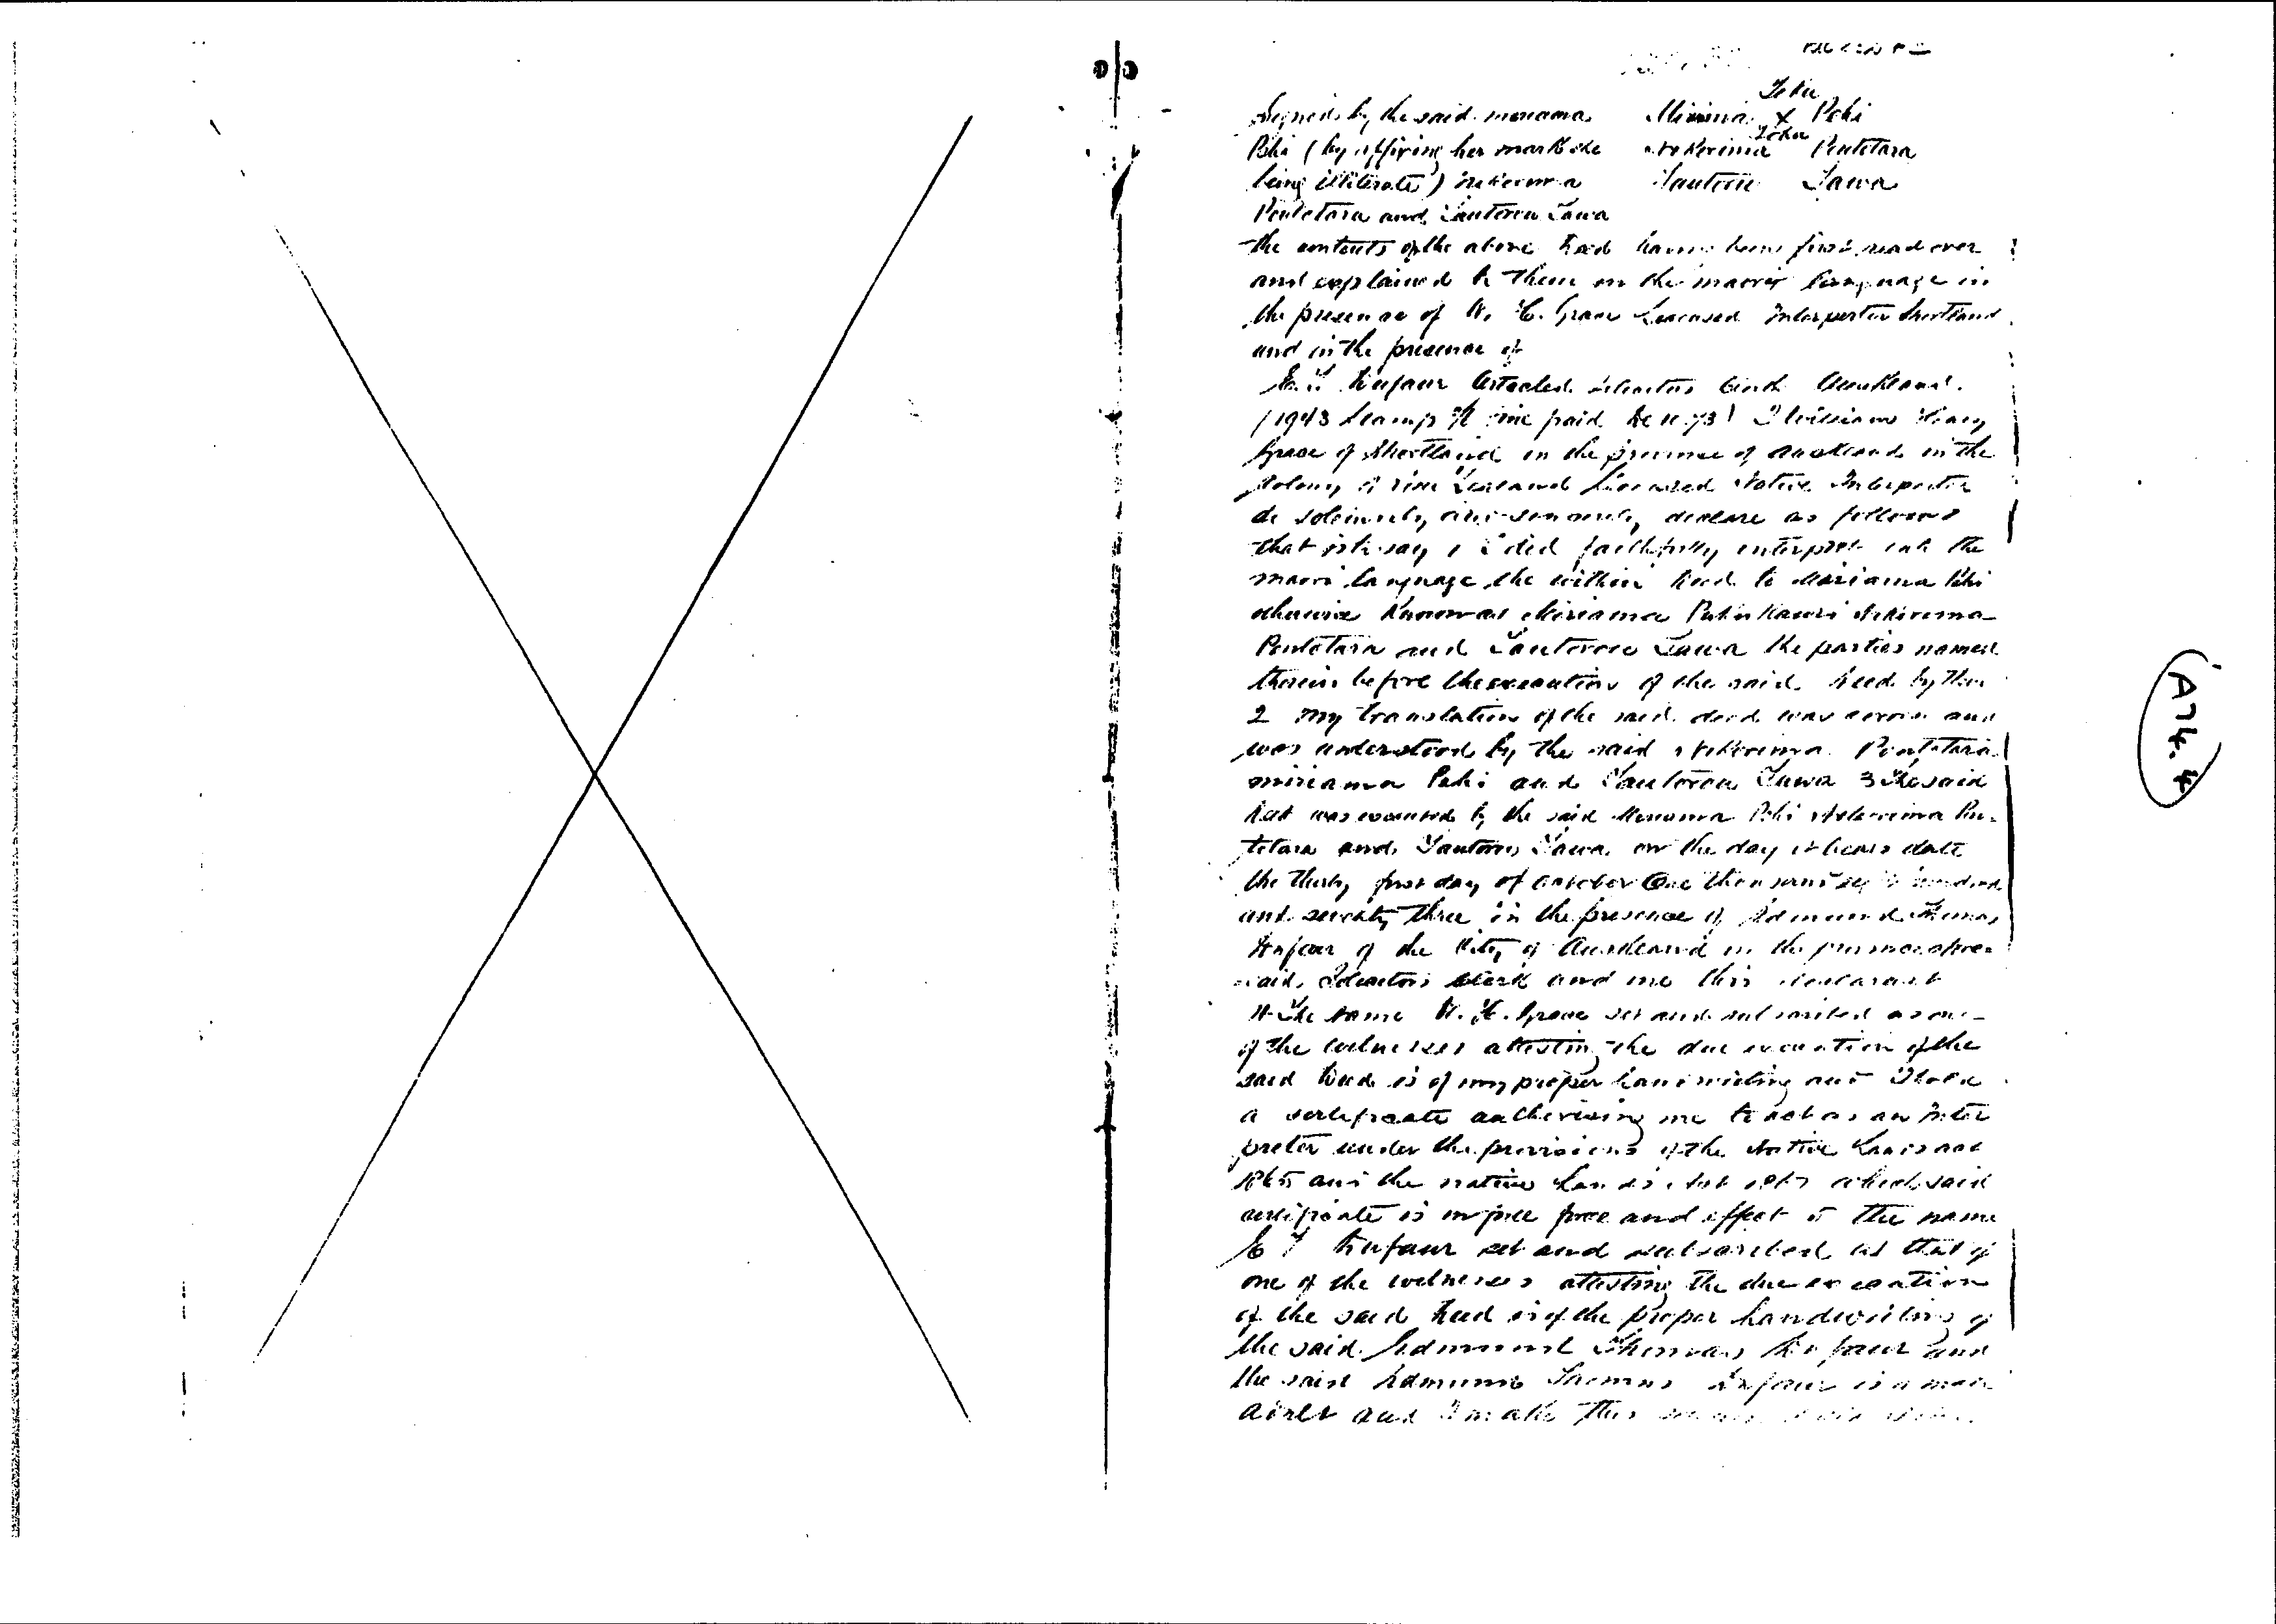 Tohu
Signed by the said Miriama Miriama X Pehi
Tohu
Pehi (by affixing her mark she Nekerima Pentetara
being illiterate) Nekerima Tautoru Tawa
Pentetara and Tautoru Tawa
the contents of the above deed having been first read over
and explained to them in the maori language in
the presence of W. H. Grace Licensed Interpreter Shortland
and in the presence of
E. T. Dufaur Articled Solicitors Clerk Auckland.
(1943 Stamp fine paid 73) I William Henry
Grace of Shortland in the province of Auckland in the
Colony of New Zealand Licensed Native Interpreter
do solemnly and sincerely declare as follows
that is to say 1 I did faithfully interpret into the
maori language the within deed to Miriama Pehi
otherwise known as Miriama Nekerima
Pentetara and Tautoru Tawa the parties named
therein before the execution of the said deed by them
2 My translation of the said deed was correct and
was understood by the said Nekerima Pentetara
Miriama Pehi and Tautoru Tawa 3 The said
deed was executed by the said Miriama Pehi Nekerima Pen-
tetara and Tautoru Tawa on the day it bears date
the thirty first day of October One thousand eight hundred
and seventy three in the presence of Edmund Thomas
Dufaur of the City of Auckland in the province afore-
said Solicitors Clerk and me this declarant
4 The name W. H. Grace set and subscribed as one
of the witnesses attesting the due execution of the
said deed is of my proper handwriting and I hold
a certificate authorising me to act as an Inter
preter under the provisions of the Native Lands Act
1865 and the native Lands Act 1867 which said
certificate is in full force and effect 5 The name
E T Dufaur set and subscribed as that of
one of the witnesses attesting the due execution
of the said deed is of the proper handwriting of
the said Edmund Thomas Dufaur and
the said Edmund Thomas Dufaur is a male
adult and I make this
A74.4